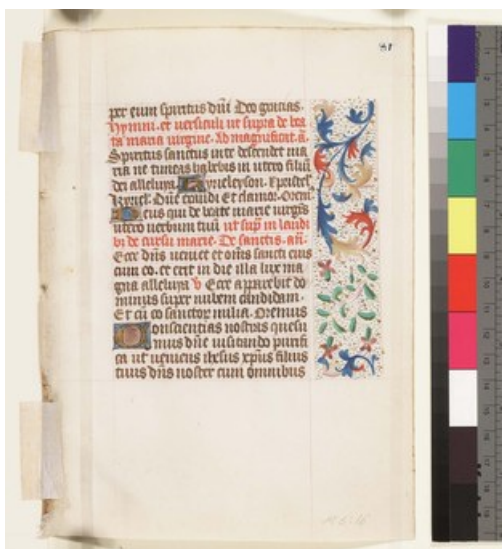 81
per eum spiritus dñi Deo gratias.
Hymni. et versiculi ut supra de bea
ta maria virgine. Ad magnificat. ã.
Spiritus sanctus in te descendet ma
ria ne timeas habebis in utero filiũ
dei alleluya Kyrieleyson. Xpristel.
Kyriel. Dñe exaudi Et clamor. Orem
Deus qui de beate marie virgĩs
utero verbum tuũ ut sup̃ in laudi
bz de cursu marie. De sanctis. añ.
Ecce dñs veniet et om̃s sancti eius
cum eo. et erit in die illa lux ma
gna alleluya V Ecce apparebit do
minus super nubem candidam.
Et cũ eo sanctor milia. Oremus
Conscientias nostras quesu
mus dñe visitando purifi
ca ut veniens ihesus xp̃us filius
tuus dñs noster cum omnibus